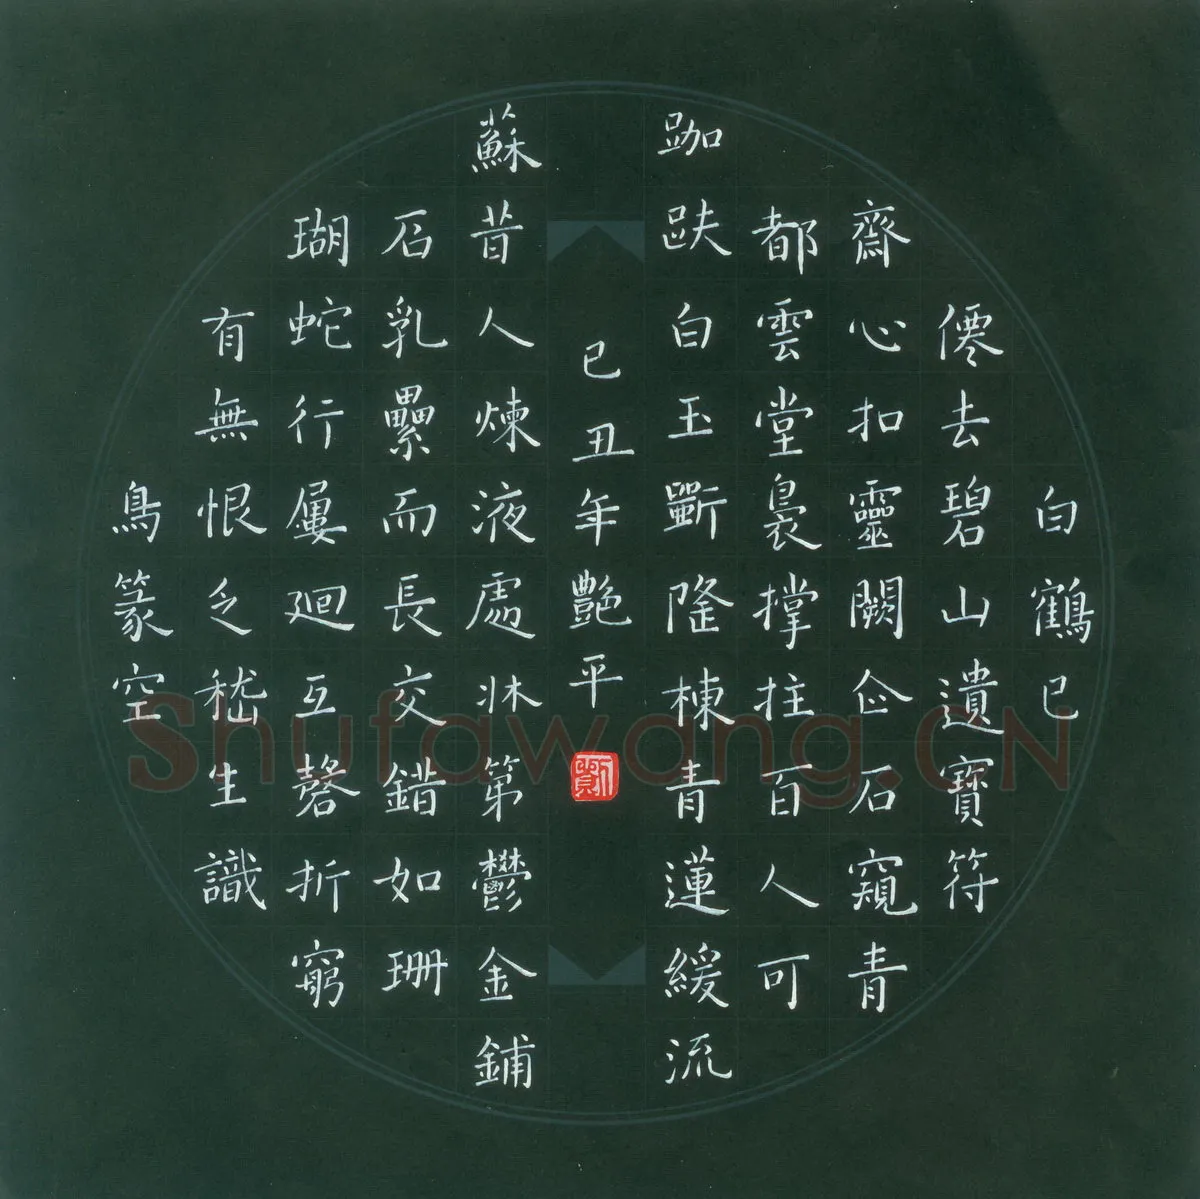 白鶴已
僊去碧山遺寶符
齋心扣靈闕企石窺青
都雲堂裊撐拄百人可
跏趺白玉斲隆棟青蓮緩流
己丑年艷平
蘇昔人煉液處牀第鬱金鋪
石乳纍而長交錯如珊
瑚蛇行屢廻互磬折窮
有無恨乏嵇生識
鳥篆空
Shufawang.CN